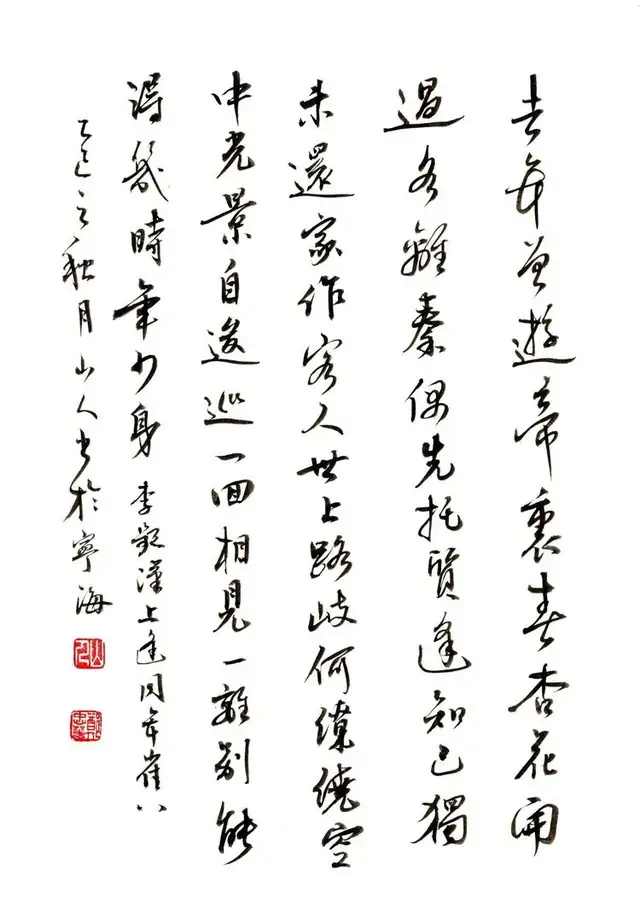 去年曾遊帝裏春杏花開
過各離秦偶先托質逢知己獨
未還家作客人世上路歧何繚繞空
中光景自逡巡一回相見一離別能
得幾時年少身 李頻漢上逢同年崔八
乙巳之秋月山人書於寧海